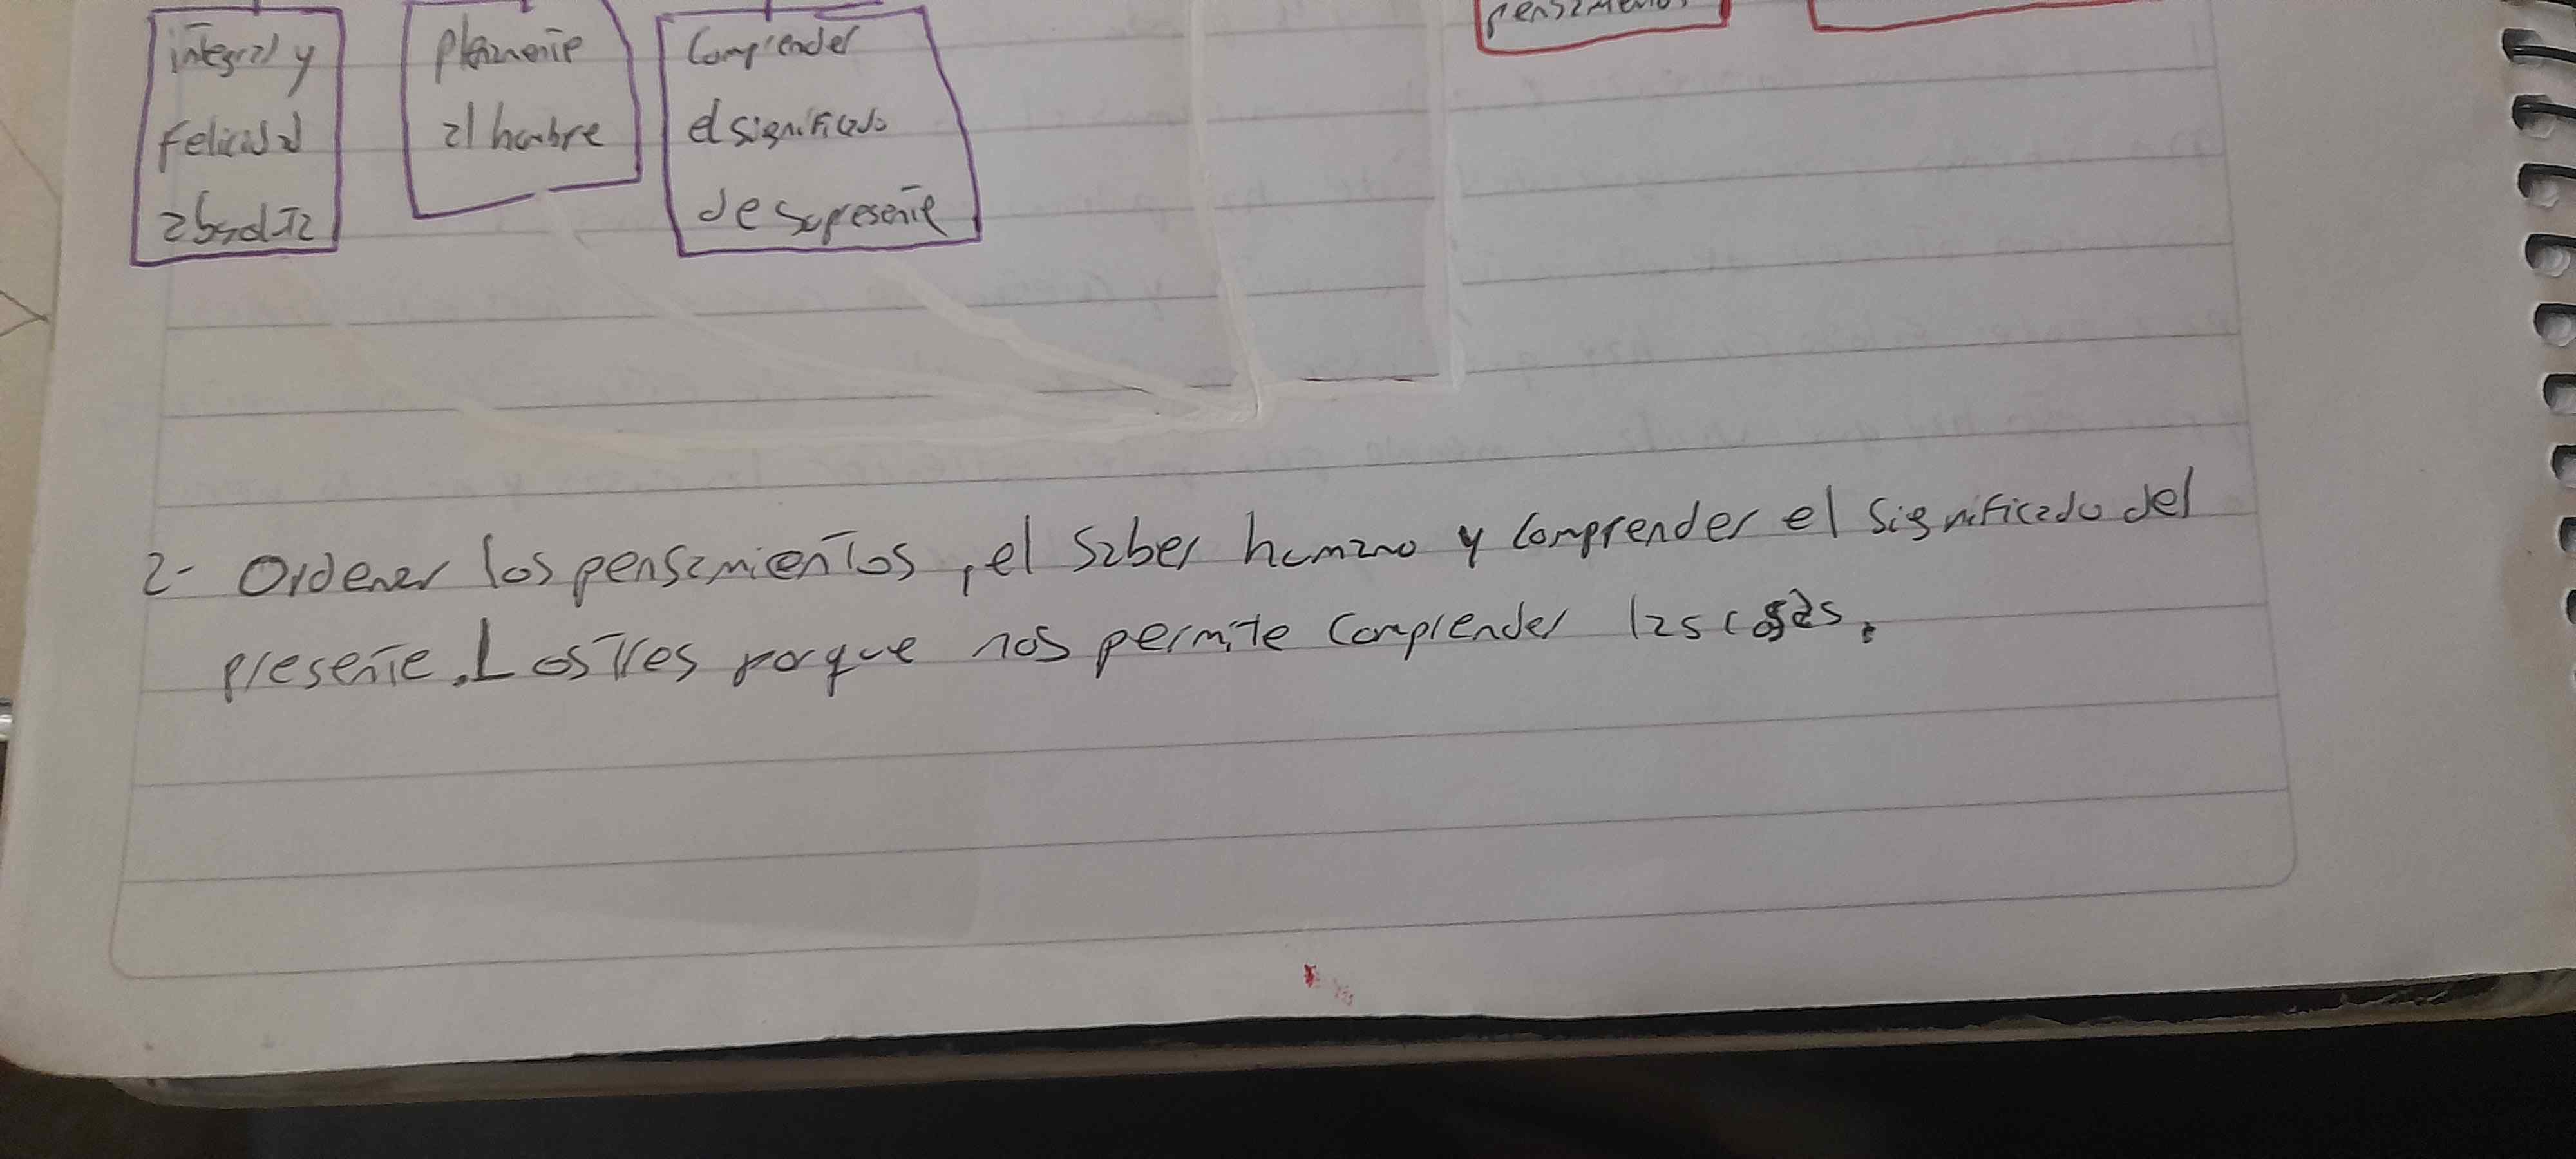 integral y
felicidad
absoluta
plenamente
al hombre
Comprender
el significado
de su presente
2- Ordenar los pensamientos, el saber humano y comprender el significado del
presente. Los tres porque nos permite comprender las cosas.